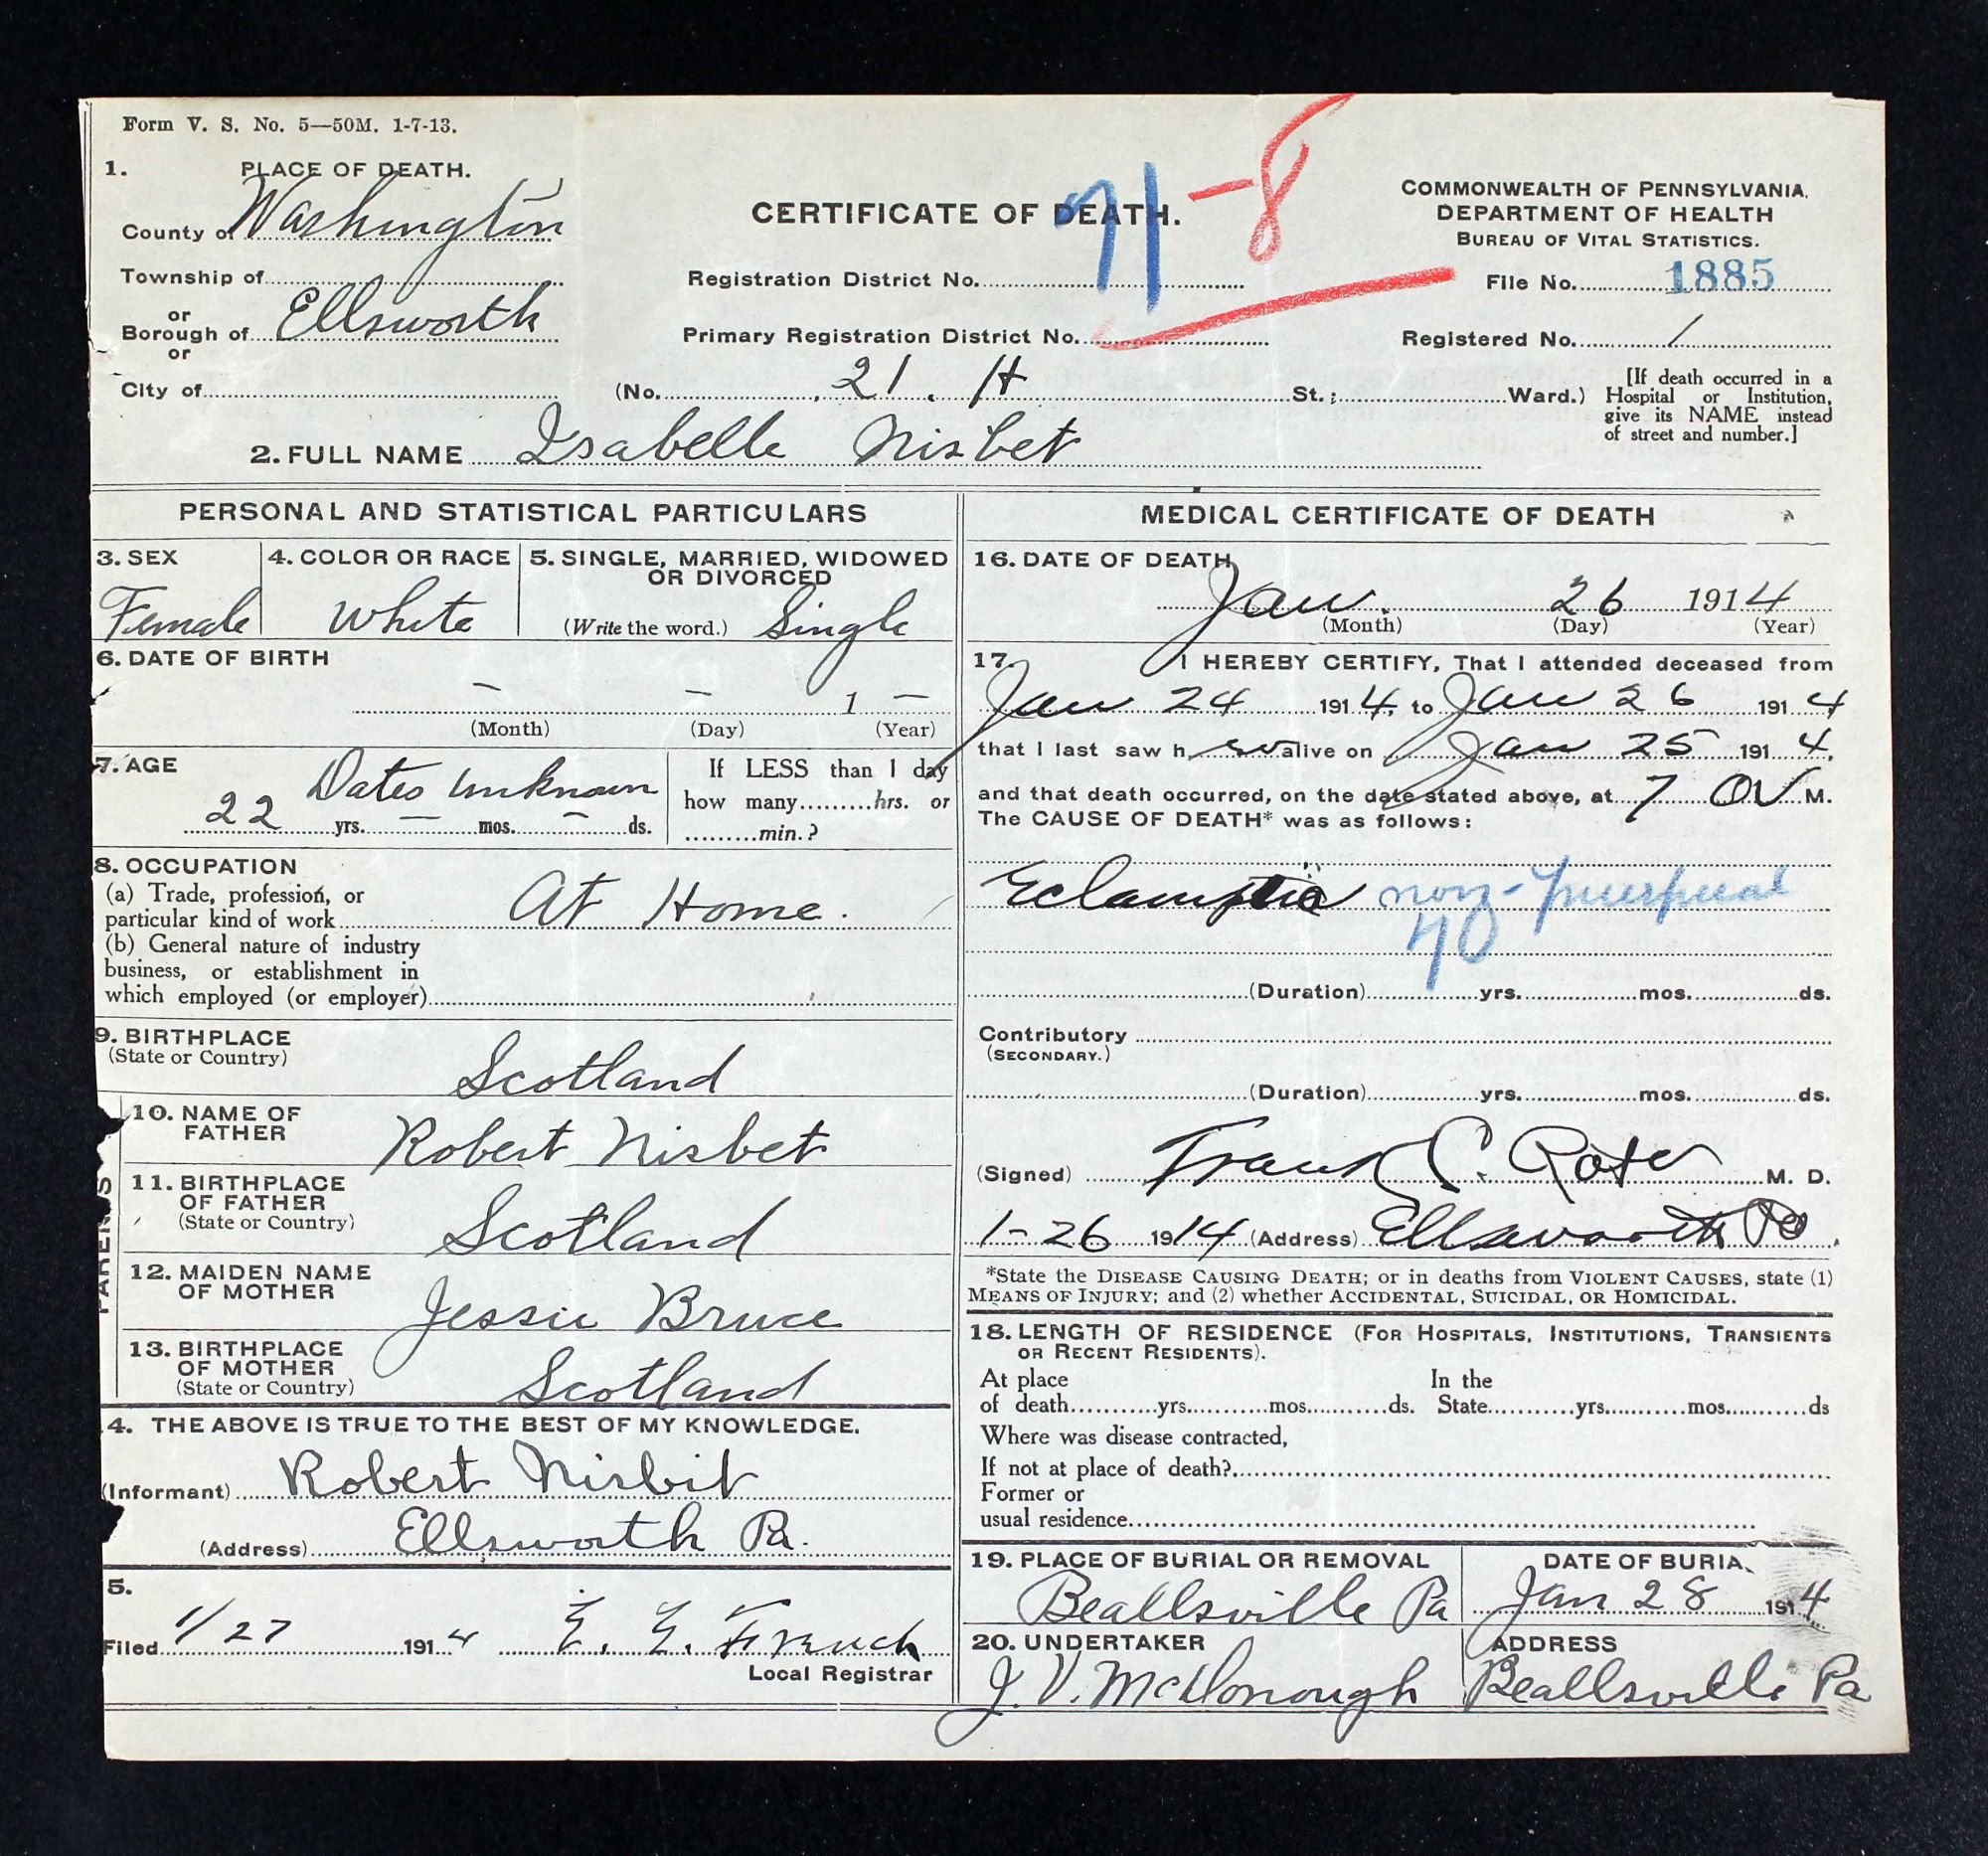 Form V. S. No. 5—50M. 1-7-13.
1. PLACE OF DEATH.
County of Washington
Township of
or
Borough of Ellsworth
or
City of
CERTIFICATE OF DEATH.
71-8
Registration District No.
Primary Registration District No.
COMMONWEALTH OF PENNSYLVANIA.
DEPARTMENT OF HEALTH
BUREAU OF VITAL STATISTICS.
File No. 1885
Registered No. 1
(No. 21. H St.; Ward.)
[If death occurred in a
Hospital or Institution,
give its NAME instead
of street and number.]
2. FULL NAME Isabelle Nisbet
PERSONAL AND STATISTICAL PARTICULARS
3. SEX
Female
4. COLOR OR RACE
White
5. SINGLE, MARRIED, WIDOWED
OR DIVORCED
(Write the word.) Single
6. DATE OF BIRTH
— — 1 —
(Month) (Day) (Year)
7. AGE
Dates unknown
22 yrs. — mos. — ds.
If LESS than 1 day
how many hrs. or
min.?
8. OCCUPATION
(a) Trade, profession, or
particular kind of work At Home.
(b) General nature of industry
business, or establishment in
which employed (or employer)
9. BIRTHPLACE
(State or Country)
Scotland
PARENTS
10. NAME OF
FATHER
Robert Nisbet
11. BIRTHPLACE
OF FATHER
(State or Country)
Scotland
12. MAIDEN NAME
OF MOTHER
Jessie Bruce
13. BIRTHPLACE
OF MOTHER
(State or Country)
Scotland
4. THE ABOVE IS TRUE TO THE BEST OF MY KNOWLEDGE.
(Informant) Robert Nisbit
(Address) Ellsworth Pa.
5.
Filed 1/27 1914 E. E. French
Local Registrar
MEDICAL CERTIFICATE OF DEATH
16. DATE OF DEATH
Jan. 26 1914
(Month) (Day) (Year)
17. I HEREBY CERTIFY, That I attended deceased from
Jan 24 1914, to Jan 26 1914
that I last saw h er alive on Jan 25 1914,
and that death occurred, on the date stated above, at 7 M.
The CAUSE OF DEATH* was as follows:
Eclamptia non-puerperal
70
(Duration) yrs. mos. ds.
Contributory
(SECONDARY.)
(Duration) yrs. mos. ds.
(Signed) Frank C. M. D.
1-26 1914 (Address) Ellsworth Pa
*State the DISEASE CAUSING DEATH; or in deaths from VIOLENT CAUSES, state (1)
MEANS OF INJURY; and (2) whether ACCIDENTAL, SUICIDAL, OR HOMICIDAL.
18. LENGTH OF RESIDENCE (FOR HOSPITALS, INSTITUTIONS, TRANSIENTS
OR RECENT RESIDENTS).
At place
of death yrs. mos. ds.
In the
State yrs. mos. ds
Where was disease contracted,
If not at place of death?
Former or
usual residence
19. PLACE OF BURIAL OR REMOVAL
Beallsville Pa
DATE OF BURIA
Jan 28 1914
20. UNDERTAKER
J. V. McDonough
ADDRESS
Beallsville Pa